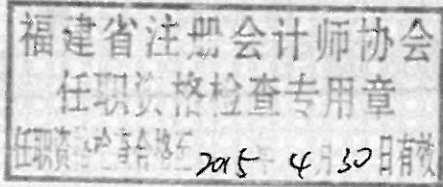 福建省注册会计师协会
任职资格检查专用章
任职资格检查合格至2015年4月30日有效